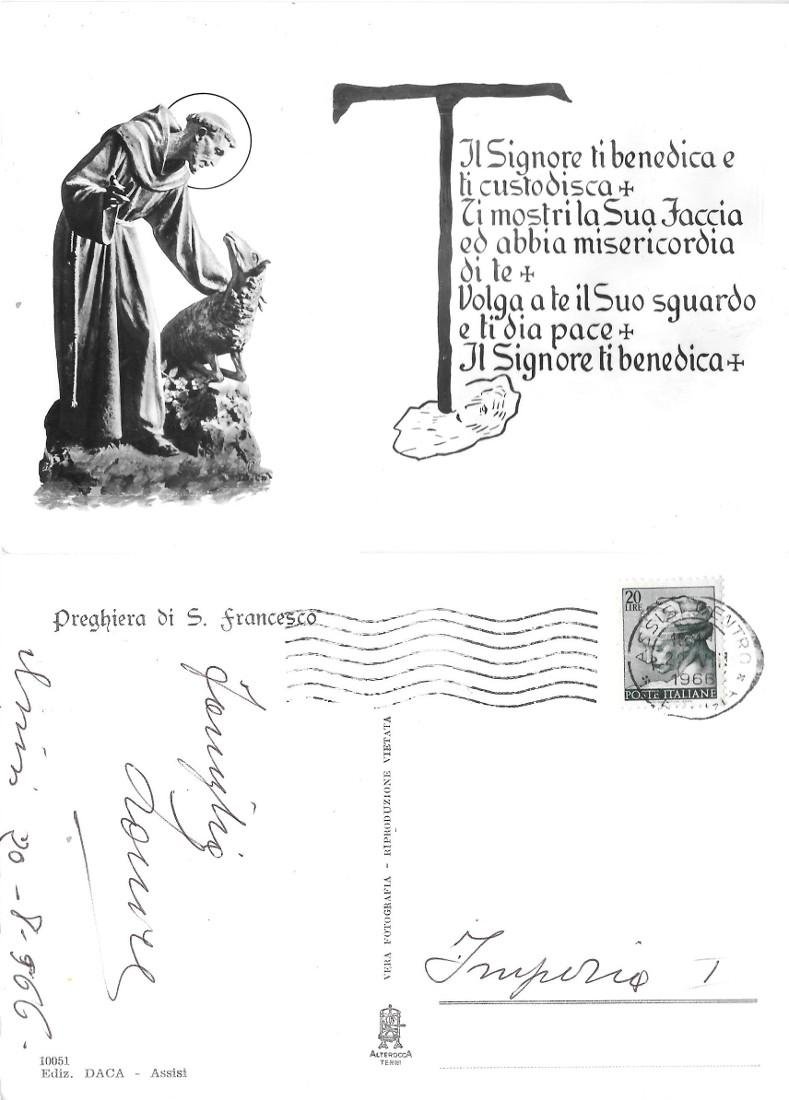 Il Signore ti benedica e
ti custodisca +
Ti mostri la Sua Faccia
ed abbia misericordia
di te +
Volga a te il Suo sguardo
e ti dia pace +
Il Signore ti benedica +
Preghiera di S. Francesco
20
LIRE
POSTE ITALIANE
ASSISI CENTRO
1966
Famiglia
20-8-966-
VERA FOTOGRAFIA - RIPRODUZIONE VIETATA
Imperia
ALTEROCCA
TERNI
10051
Ediz. DACA - Assisi